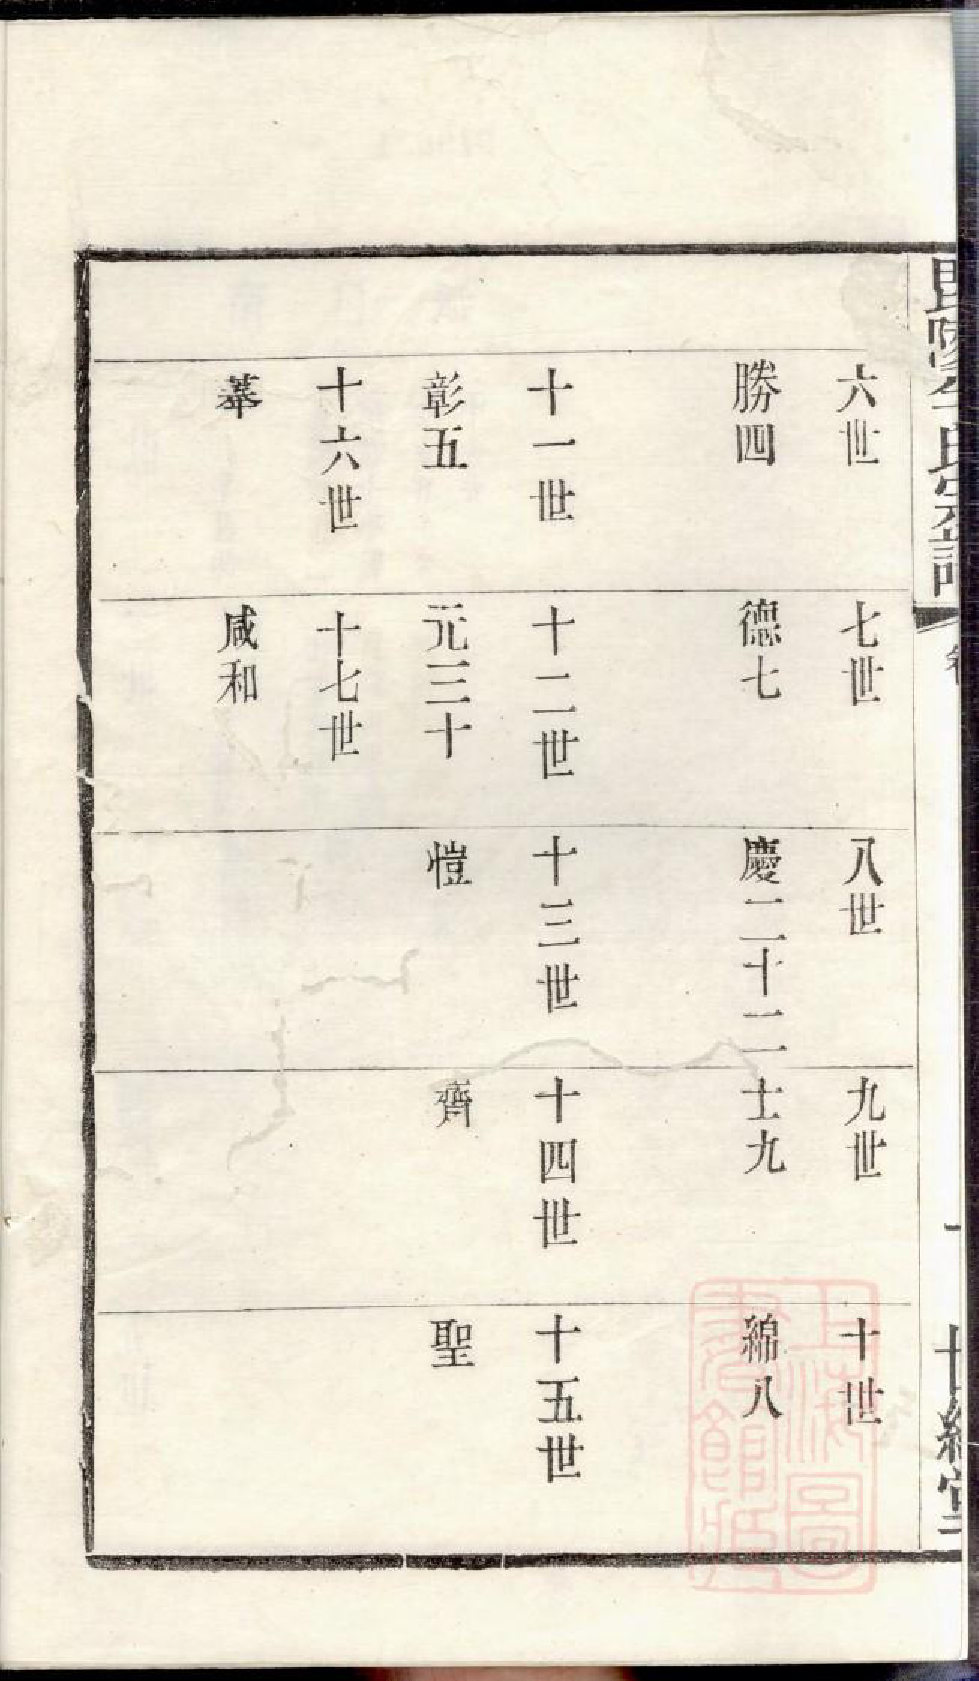 六世
勝四
七世
德七
八世
慶二十二
九世
士九
十世
綿八
十一世
彰五
十二世
元三十
十三世
愷
十四世
齊
十五世
聖
十六世
十七世
咸和
上海圖書館藏